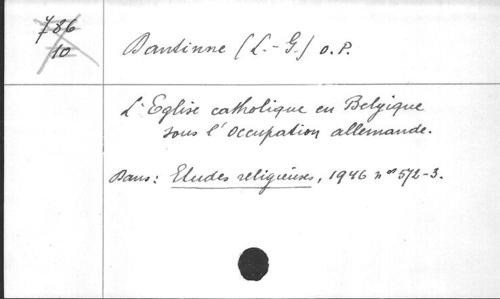 786
10
Dantinne (L.-G.) O.P.
L'Eglise catholique en Belgique
sous l'Occupation allemande.
Dans: Etudes religieuses, 1946 nos 572-3.